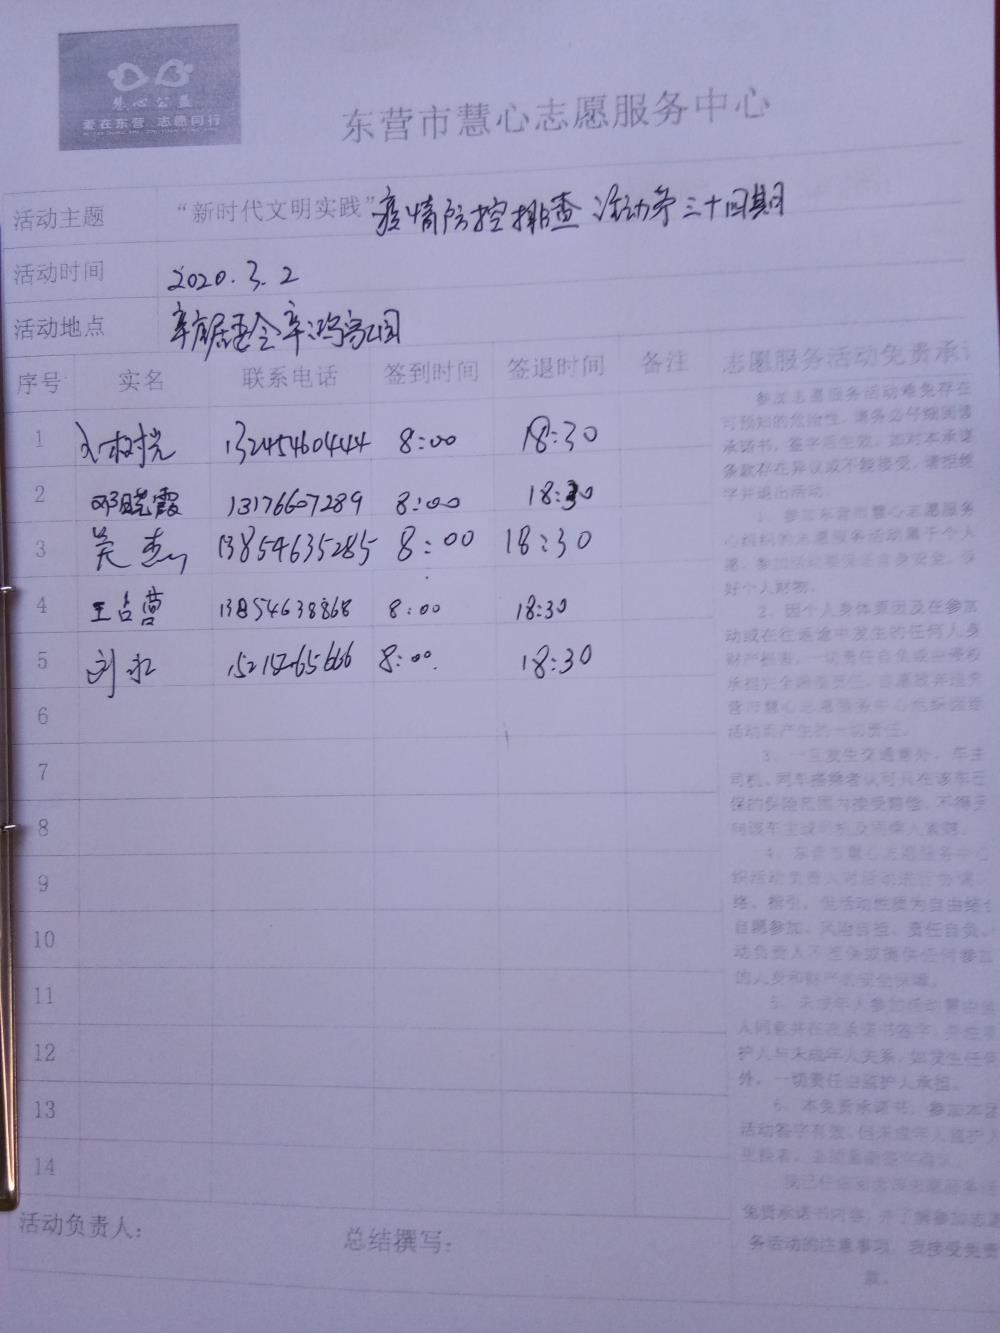 慧心公益
爱在东营 志愿同行
东营市慧心志愿服务中心
活动主题 “新时代文明实践”疫情防控排查活动第三十四期
活动时间 2020.3.2
活动地点 辛店居委会辛鸿家园
序号 实名 联系电话 签到时间 签退时间 备注
1 13245460444 8:00 18:30
2 邓晓霞 13176607289 8:00 18:30
3 吴杰 13854635285 8:00 18:30
4 王占营 13854638868 8:00 18:30
5 刘永 8:00 18:30
6
7
8
9
10
11
12
13
14
活动负责人: 总结撰写:
志愿服务活动免责承
参加志愿服务活动难免存在
可预知的危险性，请务必仔细阅读
承诺书，签字后生效。如对本承诺
条款存在异议或不能接受，请拒绝
字并退出活动。
1、参加东营市慧心志愿服务
心组织的志愿服务活动属于个人
愿，参加活动要保证自身安全，保
好个人财物。
2、因个人身体原因及在参加
动或在往返途中发生的任何人身
财产损害，一切责任自负或由侵权
承担完全赔偿责任，自愿放弃追究
营市慧心志愿服务中心组织因组
活动而产生的一切责任。
3、一旦发生交通意外，车主
司机、同车搭乘者认可只在该车已
保的保险范围内接受赔偿，不得另
向该车主或司机及同乘人索赔。
4、东营市慧心志愿服务中心
织活动负责人对活动进行协调
络、指引，但活动性质为自由结合
自愿参加、风险自担、责任自负。
动负责人不担保或提供任何参加
的人身和财产的安全保障。
5、未成年人参加活动需由监
人同意并在此承诺书签字，
护人与未成年人关系，如发生任何
外，一切责任由监护人承担。
6、本免责承诺书，参加本团
活动签字有效，但未成年人监护人
免责承诺书内容，并了解参加志愿
务活动的注意事项，我接受免责
款。